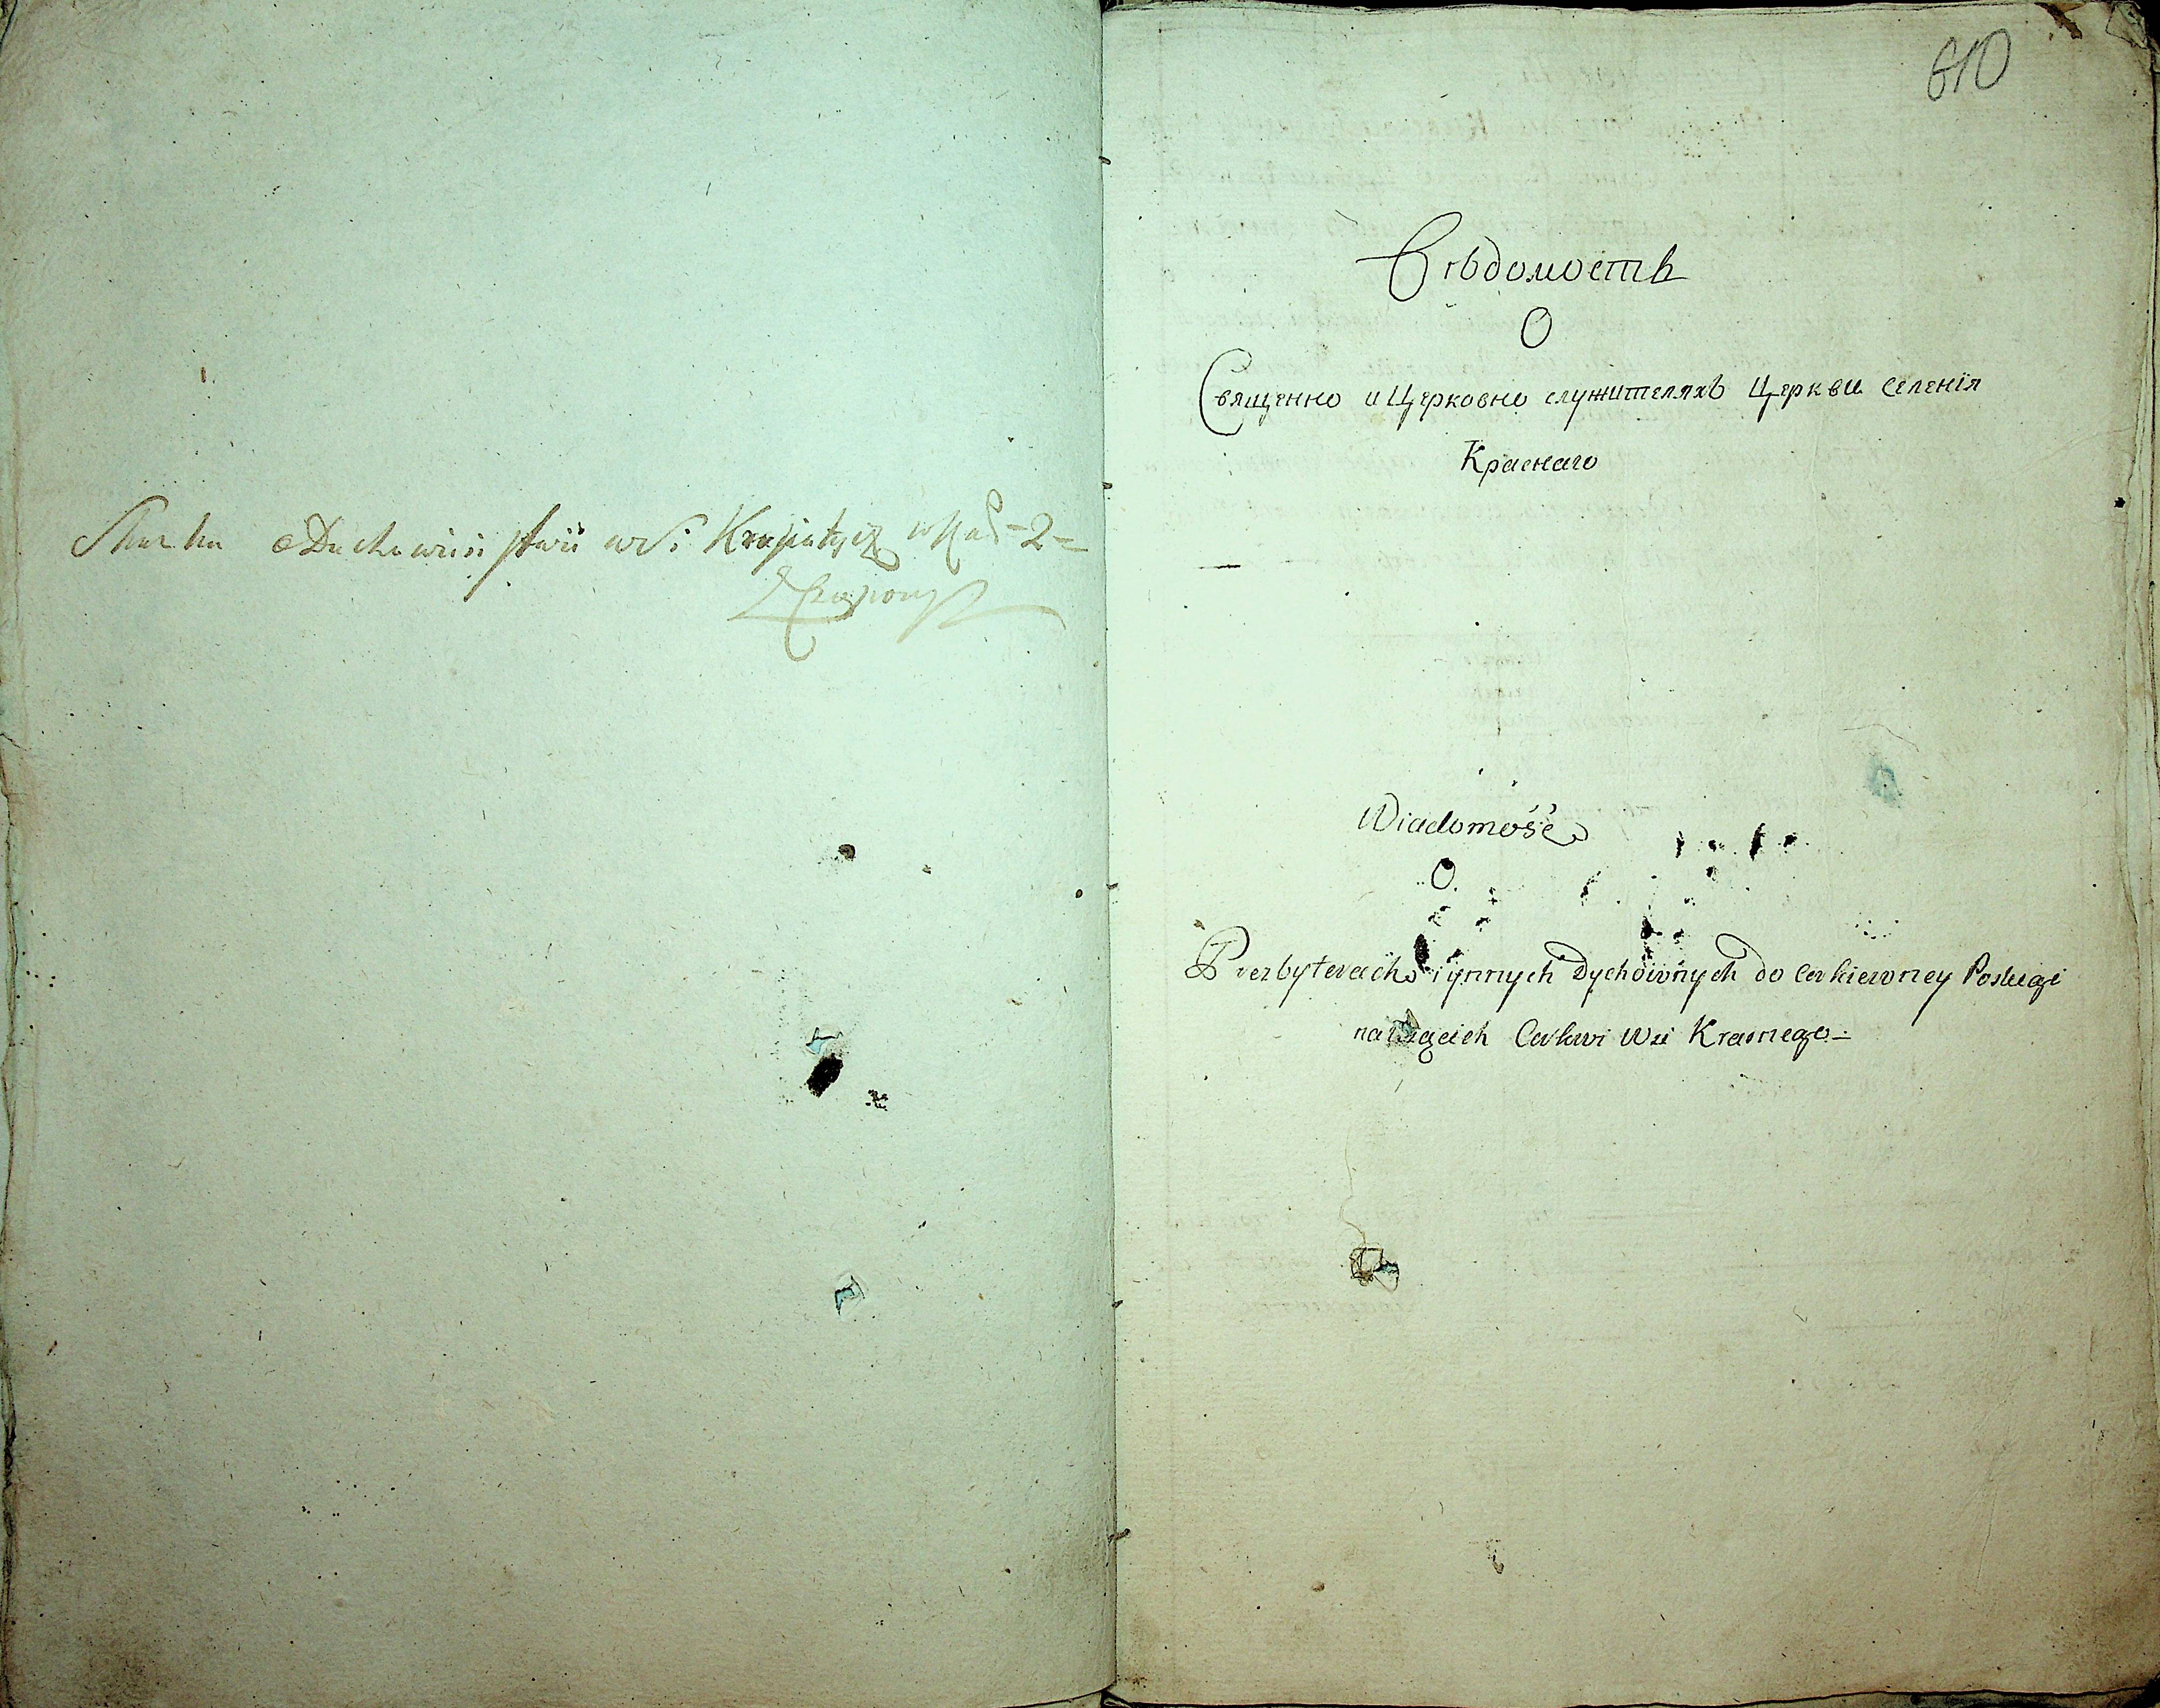 Skazka o Duchowieństwii wsi
610
Вѣдомость
О
Священно и Церковно служителяхъ Церкви селенія
Краснаго
Wiadomość
O
Prezbyterach i ynnych Dychownych do cerkiewney Posługi
należących Cerkwi Wsi Krasnego